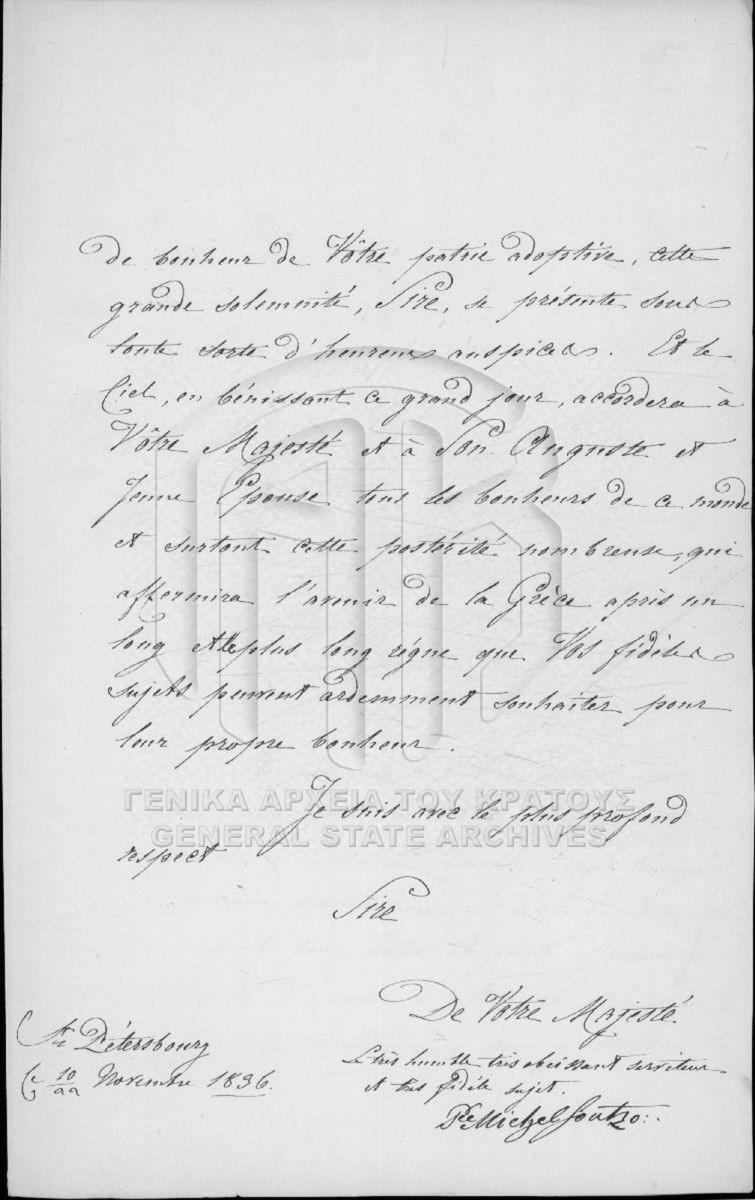 de bonheur de Vôtre patrie adoptive, cette
grande solemnité, Sire, se présente sous
toute sorte d'heureux auspices. Et le
Ciel, en bénissant ce grand jour, accordera à
Vôtre Majesté et à Son Auguste et
Jeune Epouse tous les bonheurs de ce monde
et surtout cette postérité nombreuse, qui
affermira l'avenir de la Grèce après un
long et le plus long règne que Vos fidèles
sujets peuvent ardemment souhaiter pour
leur propre bonheur.
ΓΕΝΙΚΑ ΑΡΧΕΙΑ ΤΟΥ ΚΡΑΤΟΥΣ
GENERAL STATE ARCHIVES
Je suis avec le plus profond
respect
Sire
De Vôtre Majesté
Le très humble très obeissant serviteur
et très fidèle sujet.
Pce Michel Soutzo
St Pétersbourg
Ce 10/22 Novembre 1836.